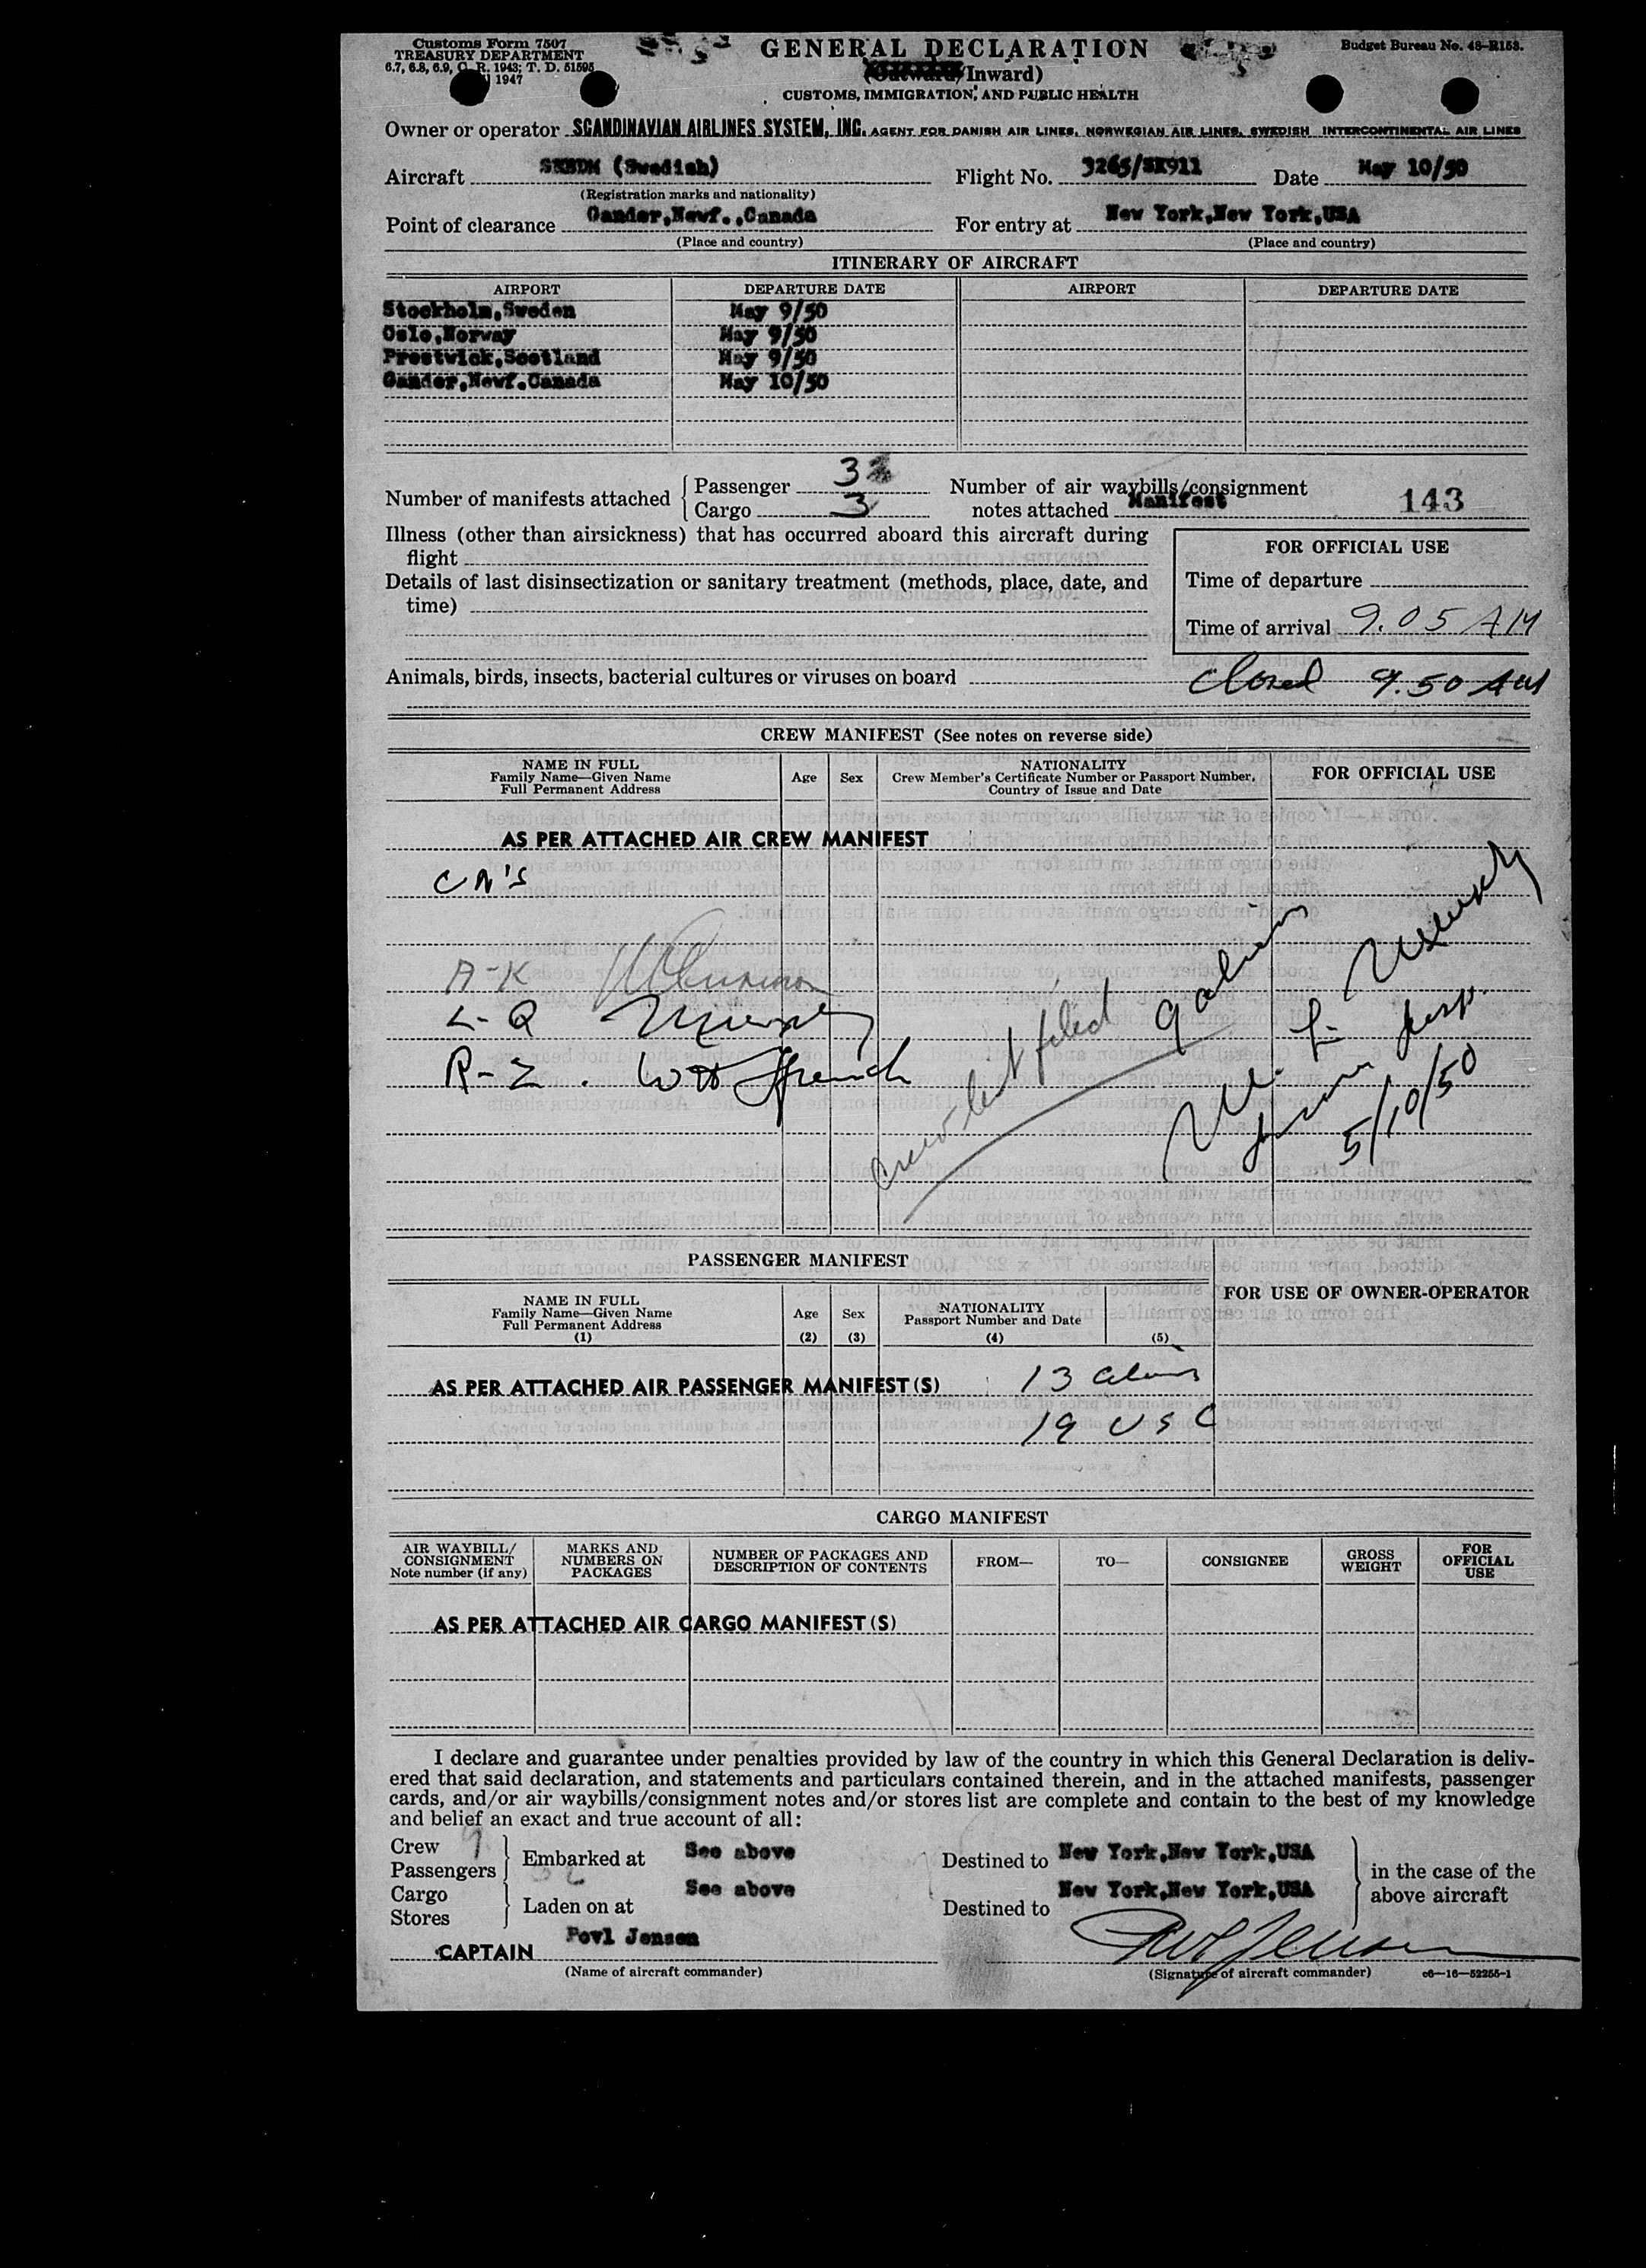 Customs Form 7507
TREASURY DEPARTMENT
6.7, 6.8, 6.9, C. R. 1943; T. D. 51595
1947
GENERAL DECLARATION
Inward)
CUSTOMS, IMMIGRATION, AND PUBLIC HEALTH
Budget Bureau No. 48-R153.
Owner or operator SCANDINAVIAN AIRLINES SYSTEM, INC. AGENT FOR DANISH AIR LINES, NORWEGIAN AIR LINES, SWEDISH INTERCONTINENTAL AIR LINES
Aircraft (Swedish) Flight No. 3265/SK911 Date May 10/50
(Registration marks and nationality)
Point of clearance Gander,Newf.,Canada For entry at New York,New York,USA
(Place and country) (Place and country)
ITINERARY OF AIRCRAFT
AIRPORT DEPARTURE DATE AIRPORT DEPARTURE DATE
Stockholm,Sweden May 9/50
Oslo,Norway May 9/50
Prestwick,Scotland May 9/50
Gander,Newf.Canada May 10/50
Number of manifests attached
Passenger 3
Cargo 3
Number of air waybills/consignment
notes attached Manifest 143
Illness (other than airsickness) that has occurred aboard this aircraft during
flight
Details of last disinsectization or sanitary treatment (methods, place, date, and
time)
FOR OFFICIAL USE
Time of departure
Time of arrival 9.05 AM
Animals, birds, insects, bacterial cultures or viruses on board
Closed 9.50 AM
CREW MANIFEST (See notes on reverse side)
NAME IN FULL
Family Name—Given Name
Full Permanent Address
Age
Sex
NATIONALITY
Crew Member's Certificate Number or Passport Number,
Country of Issue and Date
FOR OFFICIAL USE
AS PER ATTACHED AIR CREW MANIFEST
A-K
L-Q
R-Z
crew list filed
5/10/50
PASSENGER MANIFEST
NAME IN FULL
Family Name—Given Name
Full Permanent Address
(1)
Age
(2)
Sex
(3)
NATIONALITY
Passport Number and Date
(4) (5)
FOR USE OF OWNER-OPERATOR
AS PER ATTACHED AIR PASSENGER MANIFEST(S) 13 aliens
19 USC
CARGO MANIFEST
AIR WAYBILL/
CONSIGNMENT
Note number (if any)
MARKS AND
NUMBERS ON
PACKAGES
NUMBER OF PACKAGES AND
DESCRIPTION OF CONTENTS
FROM—
TO—
CONSIGNEE
GROSS
WEIGHT
FOR
OFFICIAL
USE
AS PER ATTACHED AIR CARGO MANIFEST(S)
I declare and guarantee under penalties provided by law of the country in which this General Declaration is deliv-
ered that said declaration, and statements and particulars contained therein, and in the attached manifests, passenger
cards, and/or air waybills/consignment notes and/or stores list are complete and contain to the best of my knowledge
and belief an exact and true account of all:
Crew 9
Passengers 32
Embarked at See above Destined to New York,New York,USA
Cargo
Stores
Laden on at See above Destined to New York,New York,USA
in the case of the
above aircraft
CAPTAIN Povl Jensen
(Name of aircraft commander)
Povl Jensen
(Signature of aircraft commander) c6—16—52255-1